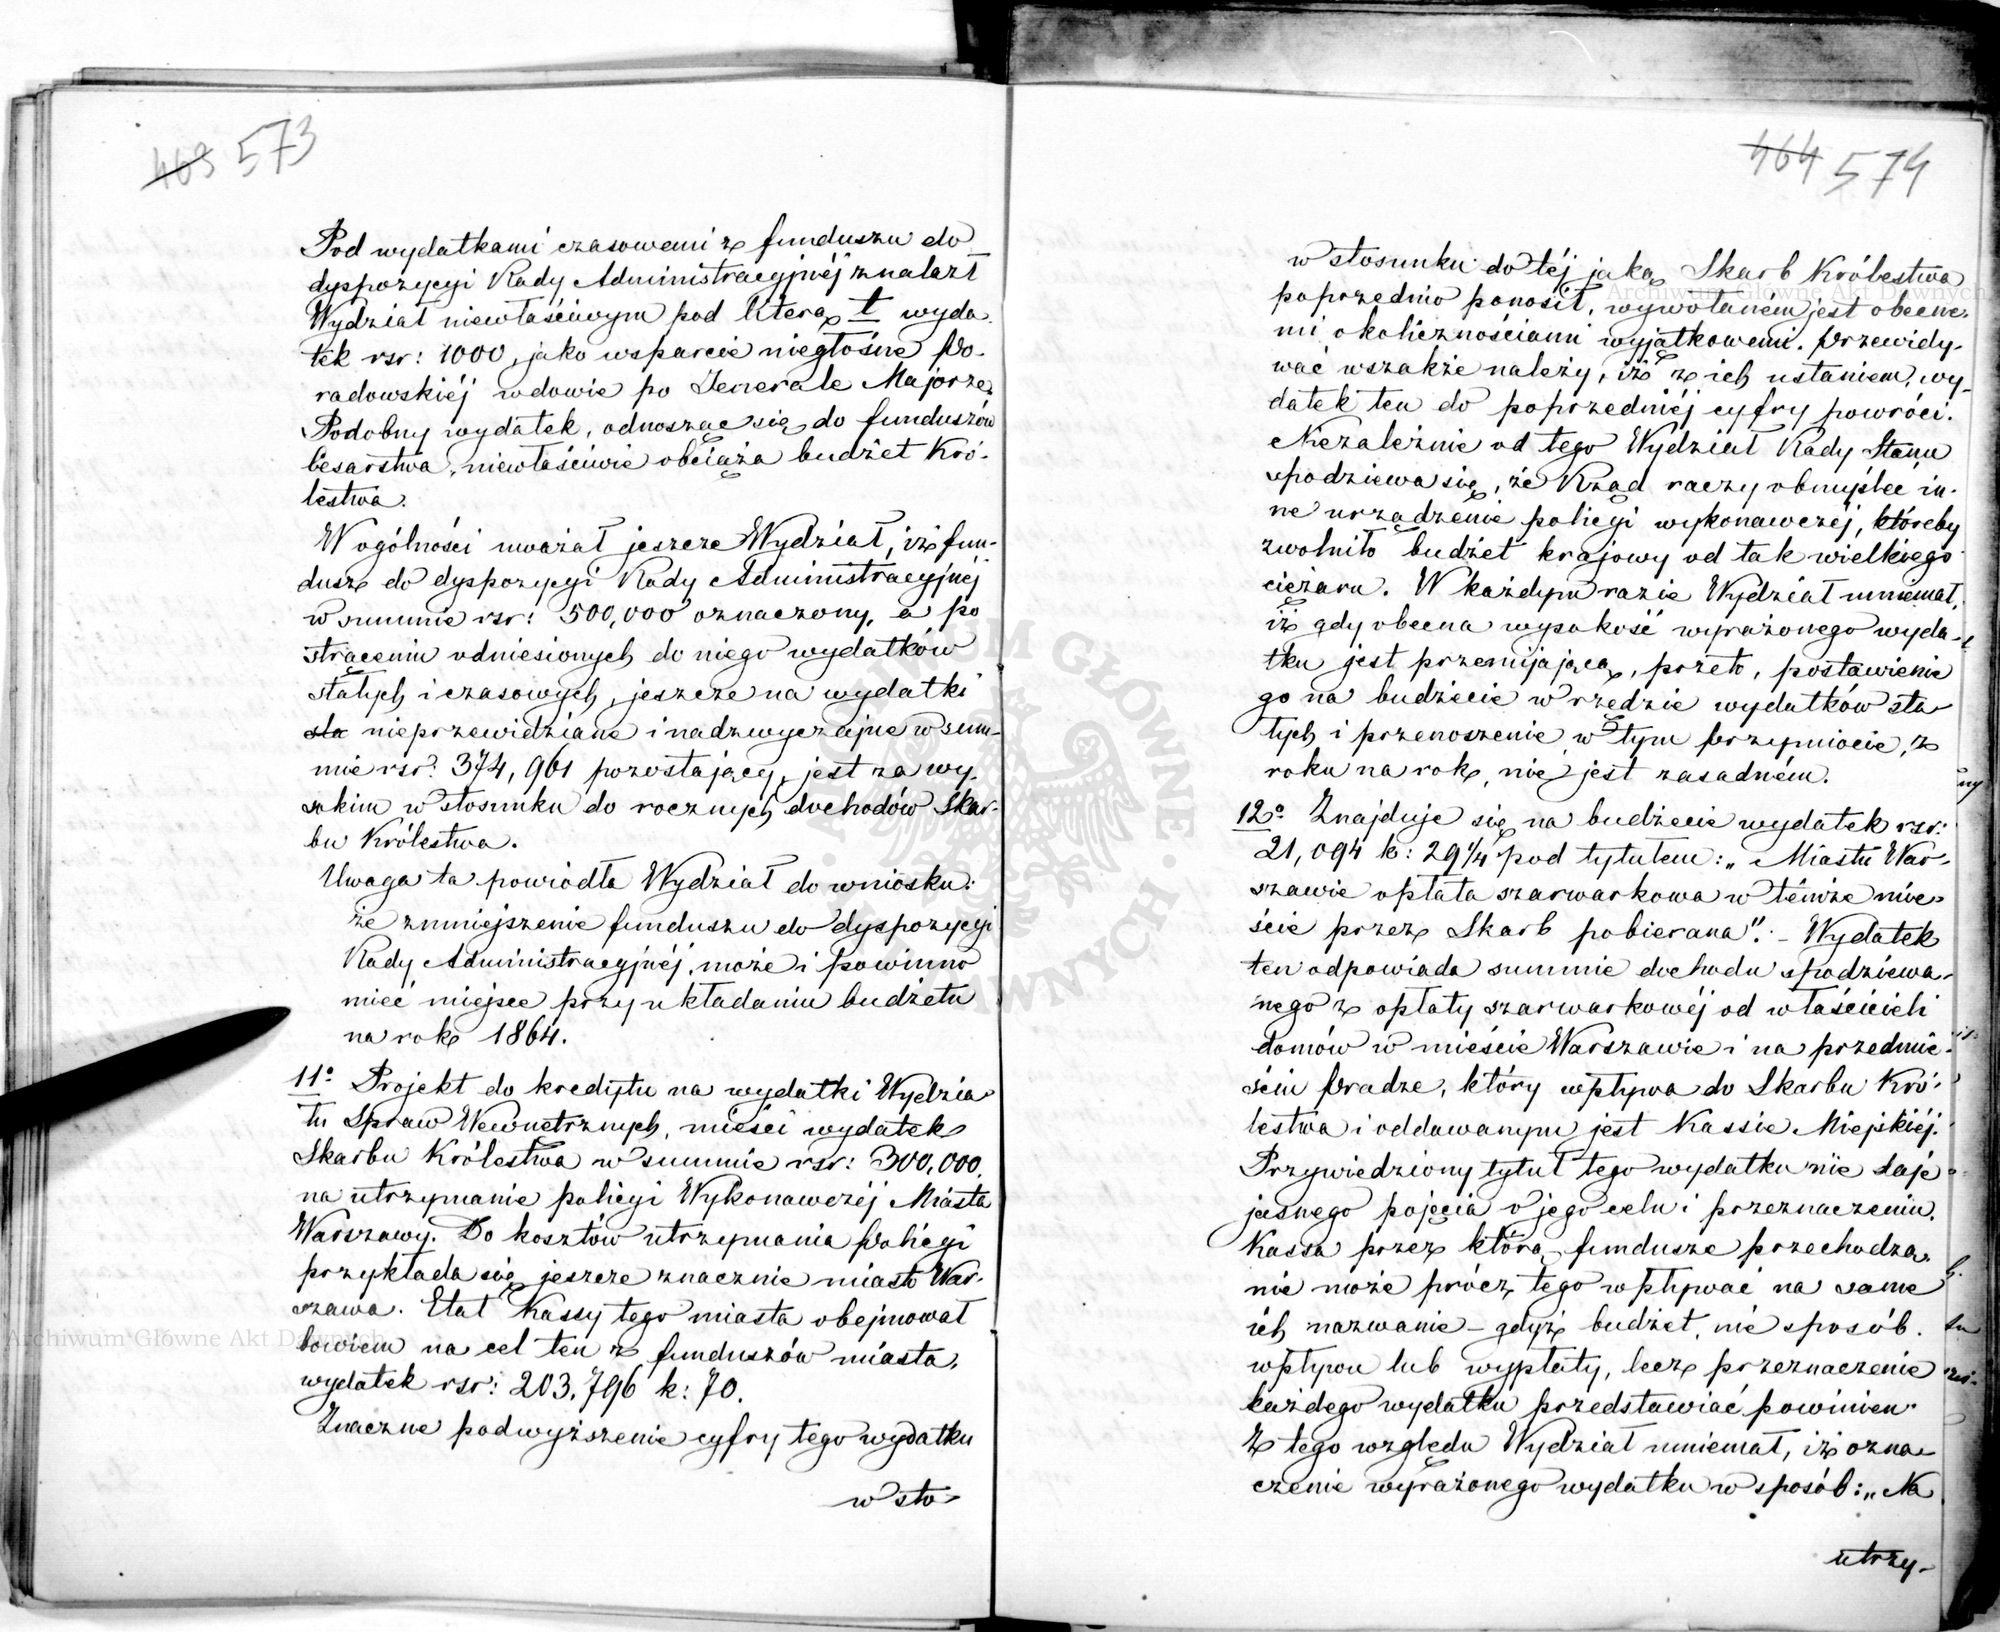 463 573
Pod wydatkami czasowemi z funduszu do
dyspozycyi Rady Administracyjnéj znalazł
Wydział niewłaściwym pod literą t wyda-
tek rsr: 1000, jako wsparcie niegłośne Po-
radowskiéj wdowie po Jenerale Majorze.
Podobny wydatek, odnosząc się do funduszów
Cesarstwa, niewłaściwie obciąża budżet Kró-
lestwa.
W ogólności uważał jeszcze Wydział, iż fun-
dusz do dyspozycyi Rady Administracyjnéj
w summie rsr: 500,000 oznaczony, a po
strąceniu odniesionych do niego wydatków
stałych i czasowych, jeszcze na wydatki
sta nieprzewidziane i nadzwyczajne w sum-
mie rsr: 374,961 pozostający, jest za wy-
sokim w stosunku do rocznych dochodów Skar-
bu Królestwa.
Uwaga ta powiodła Wydział do wniosku:
że zmniejszenie funduszu do dyspozycyi
Rady Administracyjnéj, może i powinno
mieć miejsce przy układaniu budżetu
na rok 1864.
11o Projekt do kredytu na wydatki Wydzia-
łu Spraw Wewnętrznych, mieści wydatek
Skarbu Królestwa w summie rsr: 300,000,
na utrzymanie policyi Wykonawczéj Miasta
Warszawy. Do kosztów utrzymania Policyi
przykłada się jeszcze znacznie miasto War-
szawa. Etat Kassy tego miasta obejmował
bowiem na cel ten z funduszów miasta,
wydatek rsr: 203,796 k: 70.
Znaczne podwyższenie cyfry tego wydatku
w sto-
464 574
w stosunku do téj jaką Skarb Królestwa
poprzednio ponosił, wywołaném jest obecne-
mi okolicznościami wyjątkowemi. Przewidy-
wać wszakże należy, iż z ich ustaniem, wy-
datek ten do poprzedniéj cyfry powróci.
Niezależnie od tego Wydział Rady Stanu
spodziewa się, że Rząd raczy obmyślec in-
ne urządzenie policyi wykonawczéj, któreby
zwolniło budżet krajowy od tak wielkiego
ciężaru. W każdym razie Wydział mniemał,
iż gdy obecna wysokość wyrażonego wyda-
tku jest przemijającą, przeto, postawienie
go na budżecie w rzędzie wydatków sta-
łych i przenoszenie w tym przymiocie, z
roku na rok, nie jest zasadném.
12o Znajduje się na budżecie wydatek rsr:
21,094 k: 29 1/4 pod tytułem: „Miastu War-
szawie opłata szarwarkowa w témże mie-
ście przez Skarb pobierana". – Wydatek
ten odpowiada summie dochodu spodziewa-
nego z opłaty szarwarkowéj od właścicieli
domów w mieście Warszawie i na przedmie-
ściu Pradze, który wpływa do Skarbu Kró-
lestwa i oddawanym jest Kassie Miejskiéj.
Przywiedziony tytuł tego wydatku nie daje
jasnego pojęcia o jego celu i przeznaczeniu.
Kassa przez którą fundusze przechodzą,
nie może prócz tego wpływać na same
ich nazwanie – gdyż budżet, nie sposób
wpływu lub wypłaty, lecz przeznaczenie
każdego wydatku przedstawiać powinien.
Z tego względu Wydział mniemał, iż ozna-
czenie wyrażonego wydatku w sposób: „Na
utrzy-
Archiwum Główne Akt Dawnych
Archiwum Główne Akt Dawnych
ARCHIWUM GŁÓWNE AKT DAWNYCH